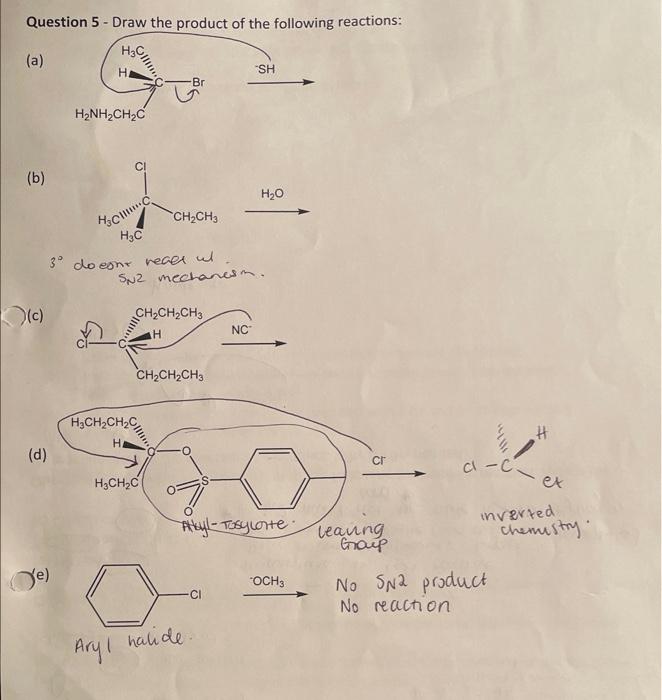 Question 5 - Draw the product of the following reactions:
(a)
H₃C
H
C
Br
H₂NH₂CH₂C
⁻SH
(b)
Cl
C
H₃C
H₃C
CH₂CH₃
H₂O
3° doesnt react w/
SN2 mechanism.
(c)
CH₂CH₂CH₃
H
Cl
C
CH₂CH₂CH₃
NC⁻
(d)
H₃CH₂CH₂C
H
C
O
H₃CH₂C
O
S
O
Cl⁻
Cl - C
H
et
Alkyl-Tosylate.
leaving
Group
inverted
chemistry.
(e)
Cl
⁻OCH₃
No SN2 product
No reaction
Aryl halide.